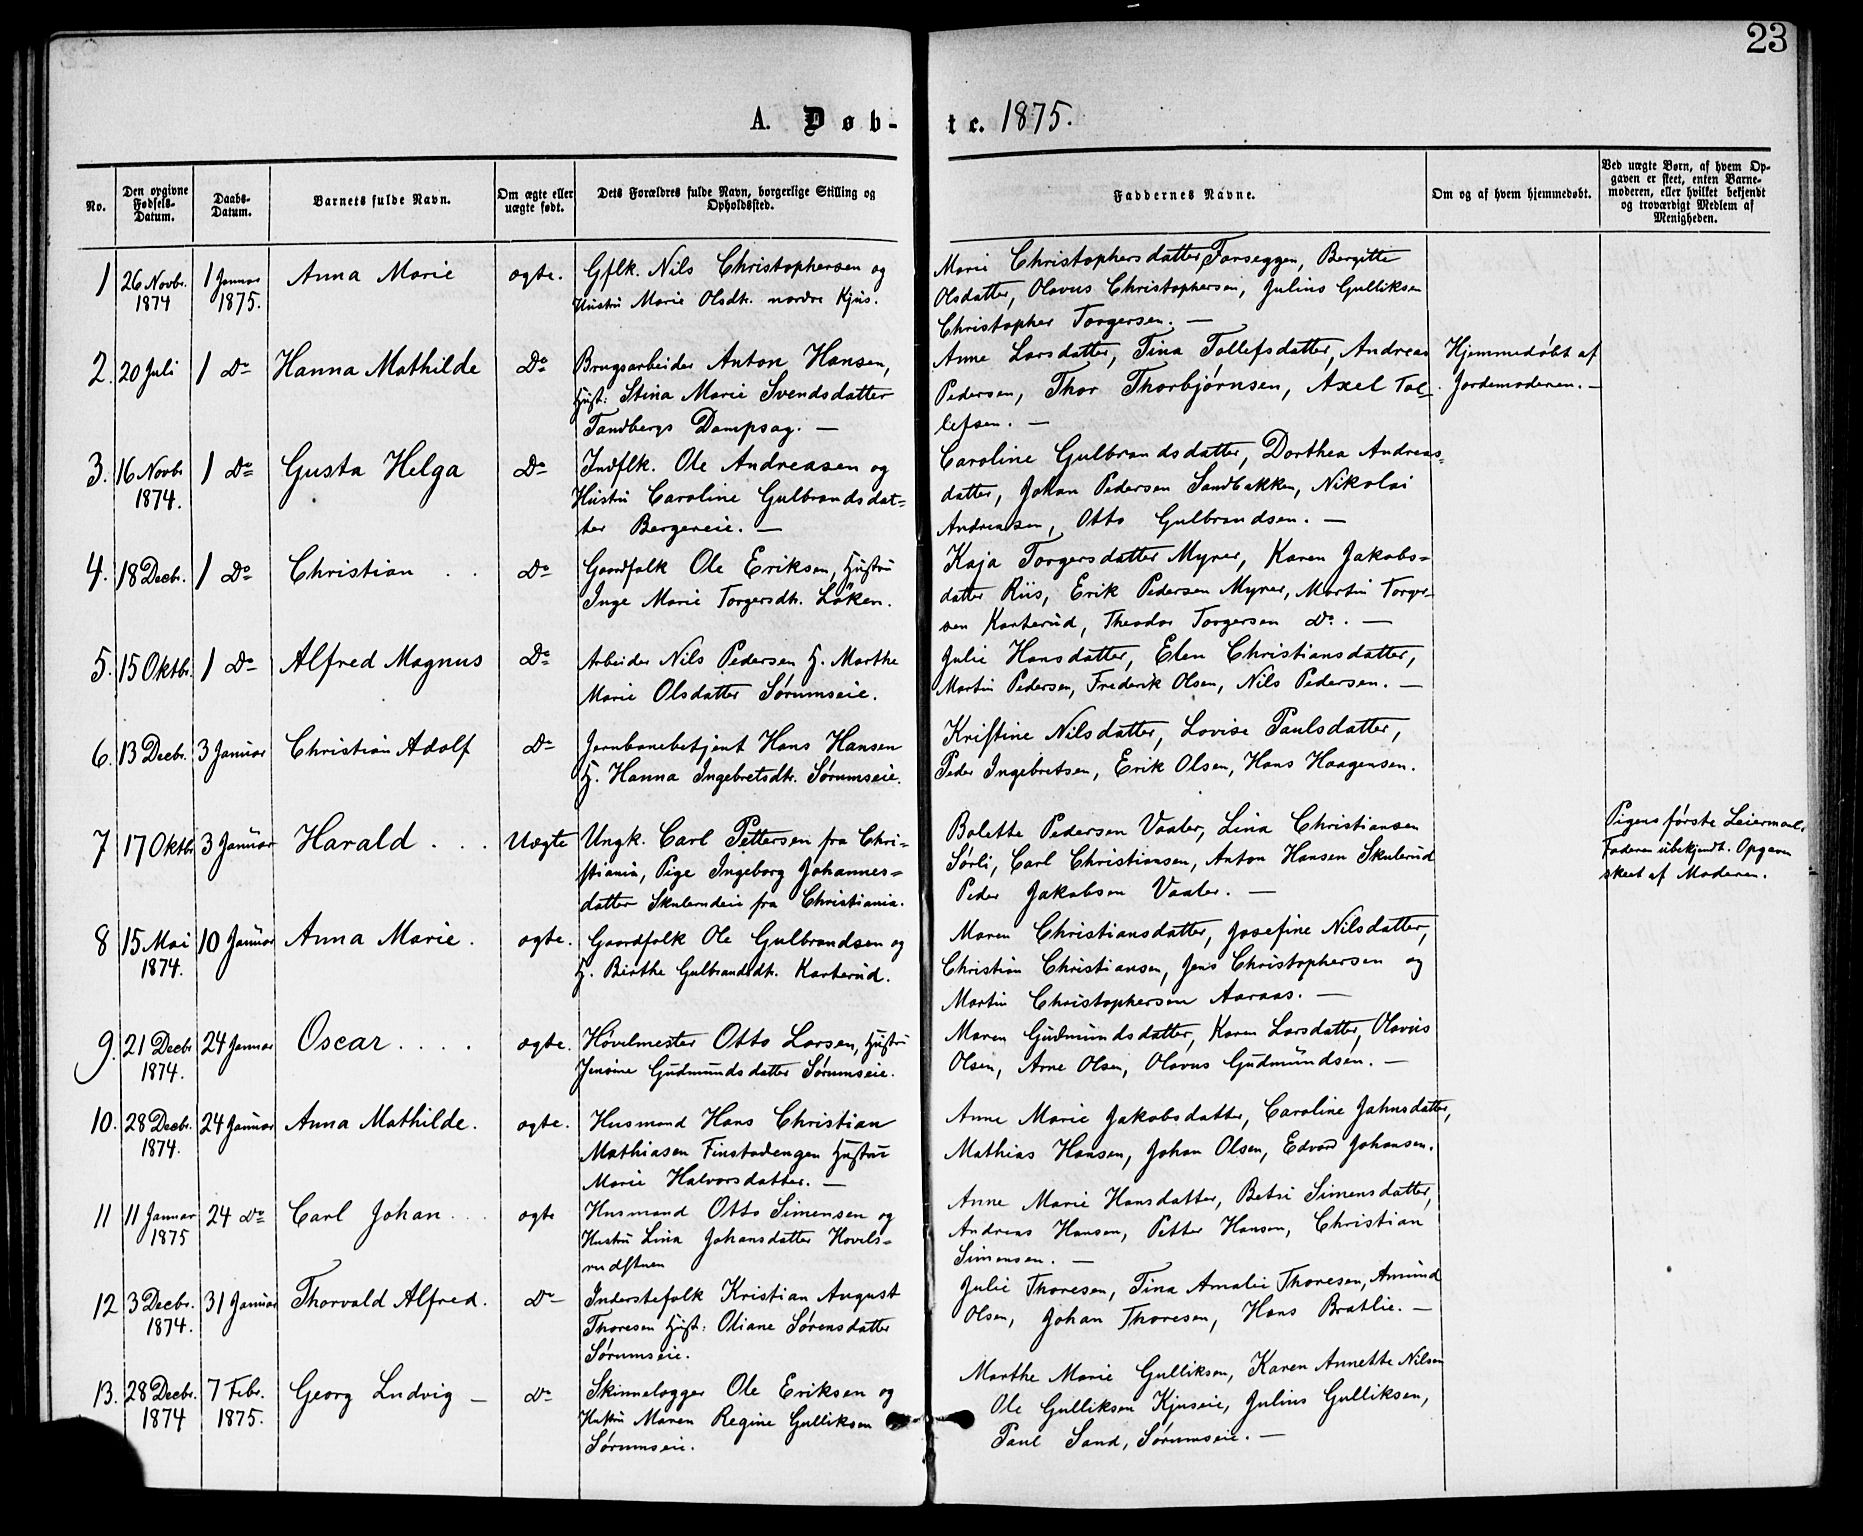 23
A. Døb- te. 1875.
No.
Den opgivne Fødsels-Datum.
Daabs-Datum.
Barnets fulde Navn.
Om ægte eller uægte født.
Dets Forældres fulde Navn, borgerlige Stilling og Opholdssted.
Faddernes Navne.
Om og af hvem hjemmedøbt.
Ved uægte Børn, af hvem Opgaven er skeet, enten Barnemoderen, eller hvilket bekjendt og troværdigt Medlem af Menigheden.
1 26 Novbr. 1874 1 Januar 1875. Anna Marie ægte.
Gflk. Nils Christophersen og
Hustru Marie Olsdtr. nordre Kjus.
Marie Christophersdatter Farseggen, Bergitte
Olsdatter, Olavus Christophersen, Julius Gulliksen
Christopher Torgersen. —
2. 20 Juli 1 Do Hanna Mathilde Do
Brugsarbeider Anton Hansen,
Hust: Stina Marie Svendsdatter
Tandbergs Dampsag. —
Anne Larsdatter, Tina Tollefsdatter, Andreas
Pedersen, Thor Thorbjørnsen, Axel Tol-
lefsen. —
Hjemmedøbt af
Jordemoderen. —
3. 16 Novbr 1874. 1 Do Gusta Helga Do
Indflk. Ole Andreasen og
Hustru Caroline Gulbrandsdat-
ter Bergereie. —
Caroline Gulbrandsdatter, Dorthea Andreas-
datter, Johan Pedersen Sandbakken, Nikolai
Andreasen, Otto Gulbrandsen. —
4. 18 Decbr. 1 Do Christian . . Do
Gaardfolk Ole Eriksen, Hustru
Inge Marie Torgersdtr. Løken.
Kaja Torgersdatter Myrer, Karen Jakobs-
datter Riis, Erik Pedersen Myrer, Martin Torger-
sen Karterud, Theodor Torgersen Do. —
5. 15 Oktbr. 1 Do Alfred Magnus Do
Arbeider Nils Pedersen H. Marthe
Marie Olsdatter Sørumseie.
Julie Hansdatter, Elen Christiansdatter,
Martin Pedersen, Frederik Olsen, Nils Pedersen. —
6. 13 Decbr. 3 Januar Christian Adolf Do
Jernbanebetjent Hans Hansen
H. Hanna Ingebretsdtr. Sørumseie.
Kristine Nilsdatter, Lovise Paulsdatter,
Peder Ingebretsen, Erik Olsen, Hans Haagensen.
7 17 Oktbr 3 Januar Harald . . . Uægte
Ungk. Carl Pettersen fra Chri-
stiania, Pige Ingeborg Johannes-
datter Skulerudeie fra Christiania.
Bolette Pedersen Vaaler, Lina Christiansen
Sørli, Carl Christiansen, Anton Hansen Skulerud
Peder Jakobsen Vaaler. —
Pigens første Leiermaal.
Faderen ubekjendt. Opgaven
skeet af Moderen.
8 15 Mai 1874. 10 Januar Anna Marie. ægte.
Gaardfolk Ole Gulbrandsen og
H. Birthe Gulbrandsdtr. Karterud.
Maren Christiansdatter, Josefine Nilsdatter,
Christian Christiansen, Jens Christophersen og
Martin Christophersen Aaraas. —
9. 21 Decbr 1874. 24 Januar Oscar . . . . ægte.
Høvelmester Otto Larsen, Hustru
Jensine Gudmundsdatter Sørumseie.
Maren Gudmundsdatter, Karen Larsdatter, Olavus
Olsen, Arne Olsen, Olavus Gudmundsen. —
10. 28 Decbr. 1874. 24 Januar Anna Mathilde. ægte.
Husmand Hans Christian
Mathiasen Finstadengen Hustru
Marie Halvorsdatter. —
Anne Marie Jakobsdatter, Caroline Jahnsdatter,
Mathias Hansen, Johan Olsen, Edvard Johansen.
11 11 Januar 1875 24 Do Carl Johan . . . ægte
Husmand Otto Simensen og
Hustru Lina Johansdatter Hovels-
rudstuen
Anne Marie Hansdatter, Betsi Simensdatter,
Andreas Hansen, Petter Hansen, Christian
Simensen. —
12 3 Decbr. 1874. 31 Januar Thorvald Alfred. Do
Inderstefolk Kristian August
Thoresen Hust: Oliane Sørensdatter
Sørumseie.
Julie Thoresen, Tina Amalie Thoresen, Amund
Olsen, Johan Thoresen, Hans Bratlie. —
13. 28 Decbr. 1874 7 Febr. 1875. Georg Ludvig — Do
Skinnelægger Ole Eriksen og
Hustru Maren Regine Gulliksen
Sørumseie.
Marthe Marie Gulliksen, Karen Annette Nilsen
Ole Gulliksen Kjuseie, Julius Gulliksen,
Paul Sand, Sørumseie. —